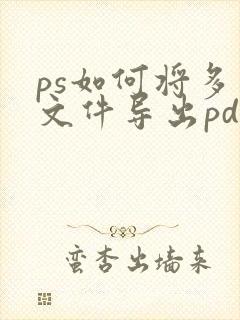 ps如何将多
文件导出pd
蛮杏出墙来